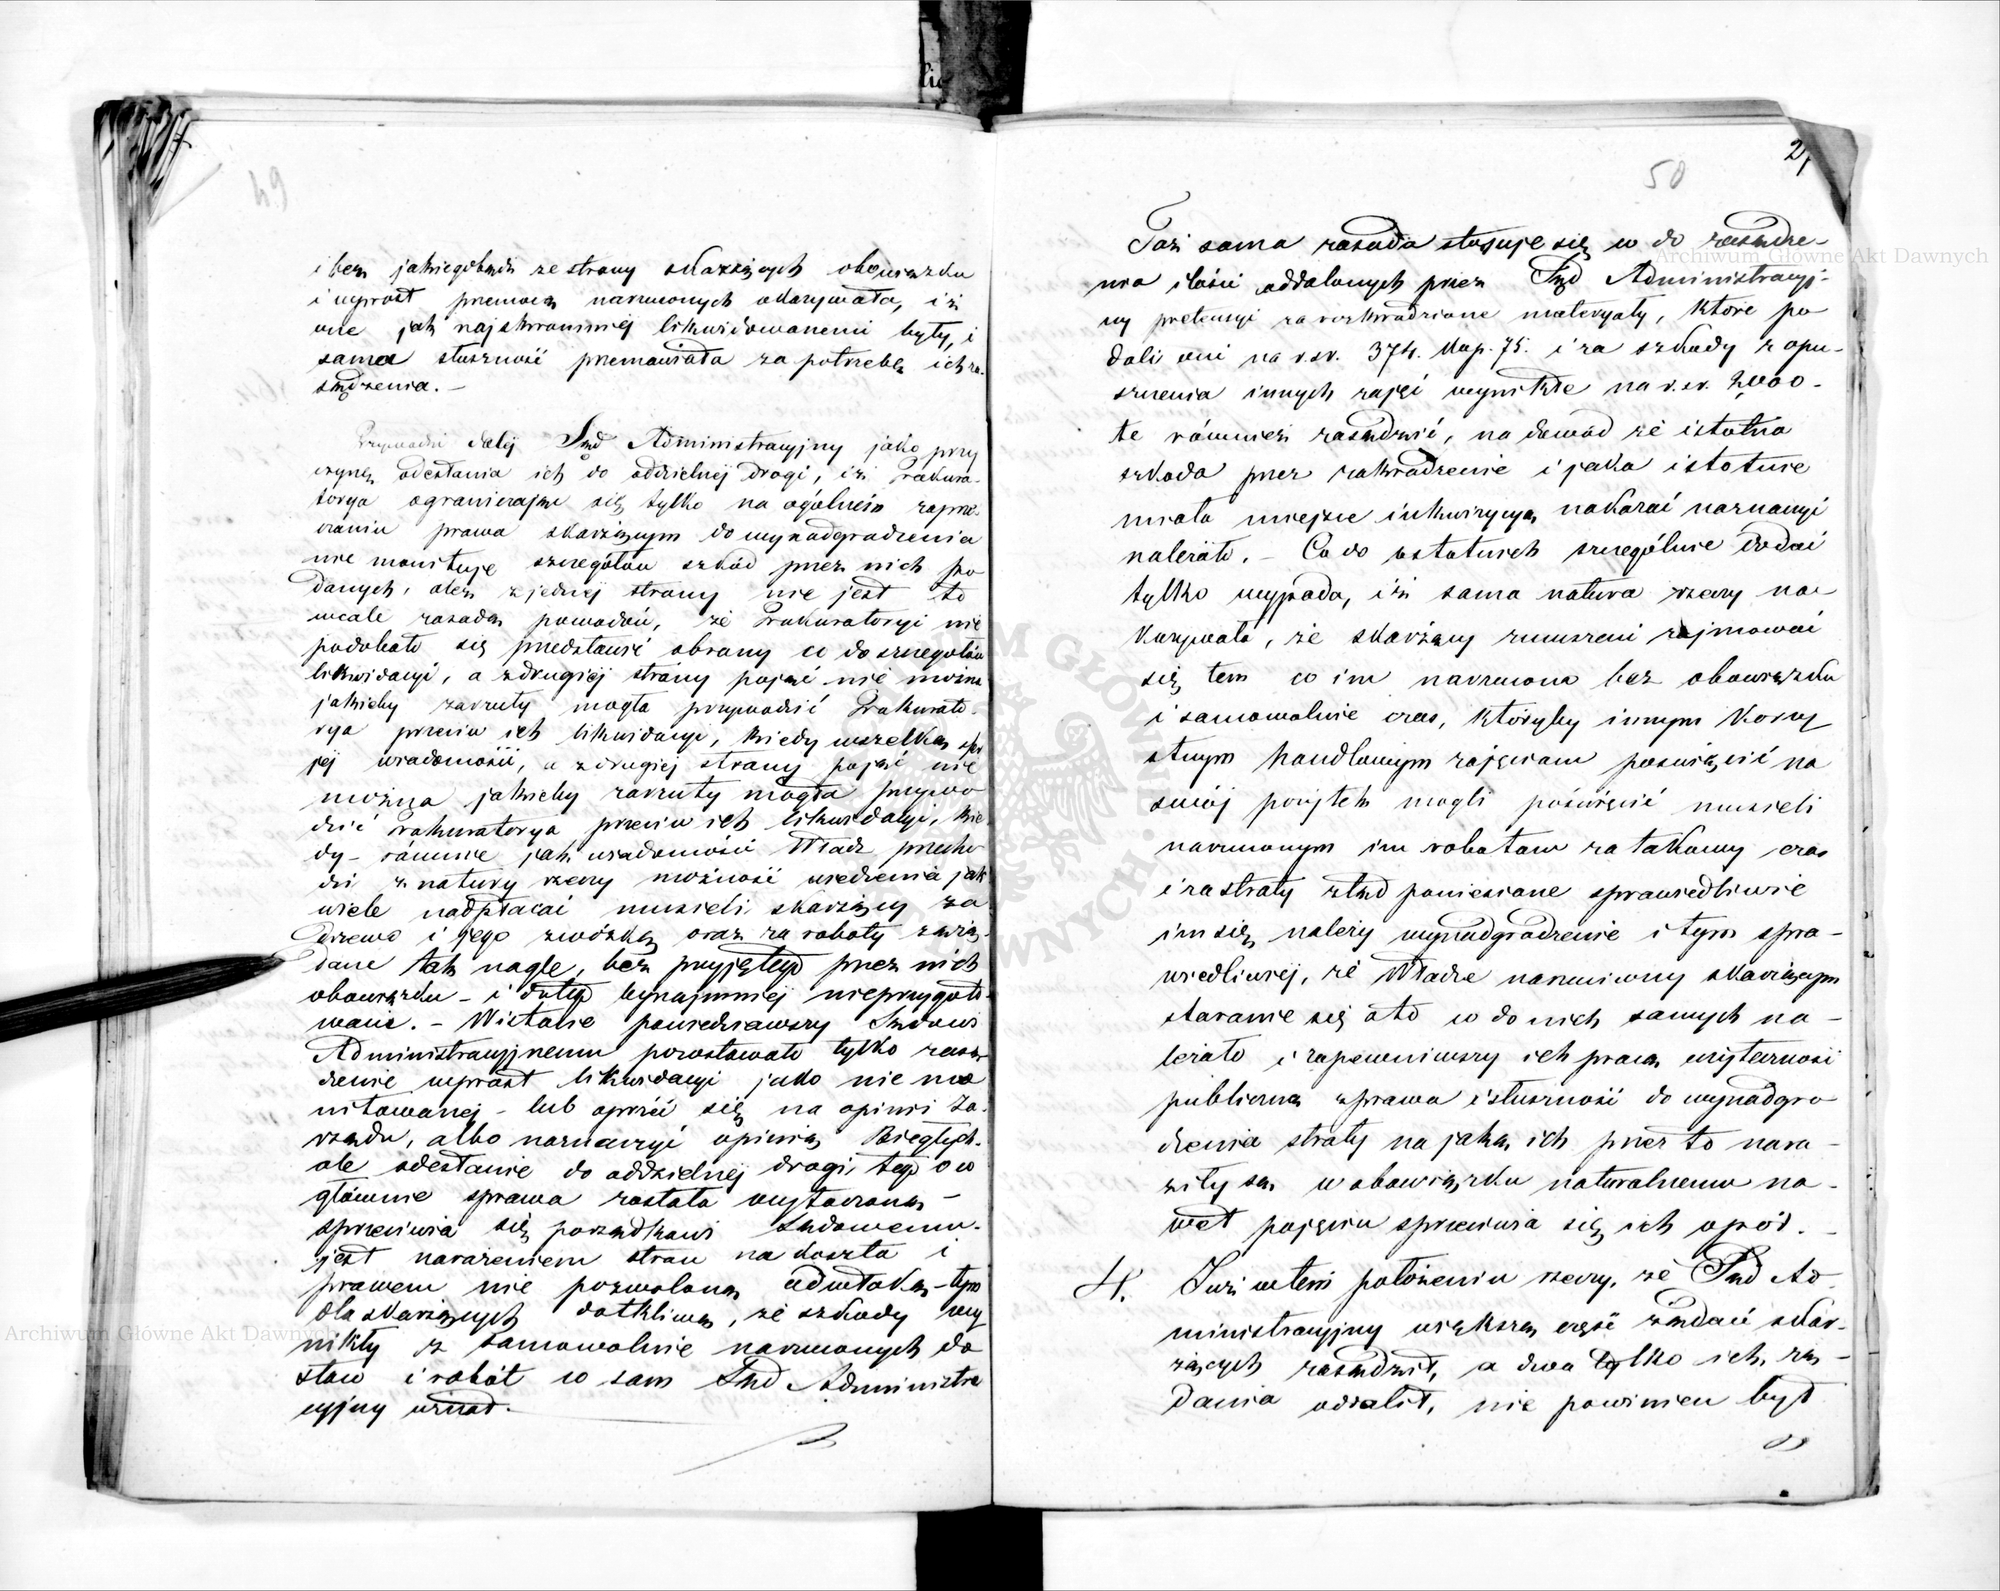 49
i bez jakiegobądź ze strony skarżących obowiązku
i wprost przemocą narzuconych okazywała, iż
one jak najskromniej likwidowanemi były, i
sama słuszność przemawiała za potrzebą ich za-
sądzenia. —
Przywodzi dalej Sąd Administracyjny jako przy
czynę odesłania ich do oddzielnej drogi, iż Prokura-
torya ograniczając się tylko na ogólném zaprze-
czaniu prawa skarżącym do wynadgrodzenia
nie monituje szczegółów szkód przez nich po
danych, ależ z jednej strony nie jest to
wcale zasadą powodów, że Prokuratoryi nie
podobało się przedstawić obrony co do szczegółów
likwidacyi, a z drugiej strony pojąć nie można
jakieby zarzuty mogła przywodzić Prokurato-
rya przeciw ich likwidacyi, kiedy wszelką
jej wiadomości, a z drugiej strony pojąć nie
można jakieby zarzuty mogła przywo
dzić Prokuratorya przeciw ich likwidacyi, kie-
dy – równie jak wiadomości Władz przecho
dzi z natury rzeczy możność wiedzenia jak
wiele nadpłacać musieli skarżący za
drzewo i jego zwózkę oraz za roboty zażą-
dane tak nagle, bez przyjętego przez nich
obowiązku – i dotąd bynajmniej nieprzygoto-
wani. – Wistocie powiedziawszy Sądowi
Administracyjnemu pozostawało tylko zasą-
dzenie wprost likwidacyi jako nie mo
nitowanej – lub oprzéć się na opinii Za-
rządu, albo naznaczyć opinią Biegłych.
ale odesłanie do oddzielnej drogi, tego o co
głównie sprawa została wytoczona –
sprzeciwia się porządkowi Sądowemu.
jest narażeniem stron na koszta i
prawem nie pozwoloną odwłokę – tym
dla skarżących dotkliwą, że szkody wy
nikły z samowolnie narzuconych do
staw i robót co sam Sąd Administra
cyjny uznał.
50
2
Taż sama zasada stosuje się co do zasądze-
nia ilości oddalonych przez Sąd Administracyj-
ny pretensyi za rozkradzione materyały, które po
dali oni na r.sr. 374. kop. 75. i za szkody z opu-
szczenia innych zajęć wynikłe na r.sr. 2,000 –
te również zasądzić, na dowód że istotna
szkoda przez rozkradzenie i jaka istotnie
miała miejsce inkwizycyą nakazać naznaczyć
należało. – Co do ostatnich szczególnie dodać
tylko wypada, iż sama natura rzeczy na-
kazywała, że skarżący zmuszeni zajmować
się tem co im narzucono bez obowiązku
i samowolnie czas, któryby innym korzy
stnym handlowym zajęciom poświęcić na
swój pożytek mogli poświęcić musieli
narzuconym im robotom za takowy czas
i za straty ztąd poniesione sprawiedliwie
im się należy wynadgrodzenie i tym spra-
wiedliwiej, że Władze narzuciwszy skarżącym
staranie się o to co do nich samych na-
leżało i zapewniwszy ich pracą użyteczność
publiczną z prawa i słuszności do wynadgro
dzenia straty na jaką ich przez to nara-
ziły są w obowiązku naturalnemu na-
wet pojęciu sprzeciwia się ich opór. –
4. Już w tem położeniu rzeczy, że Sąd Ad
ministracyjny większą część żądań skar-
żących zasądził, a dwa tylko ich żą-
dania oddalił, nie powinien był
Archiwum Główne Akt Dawnych
Archiwum Główne Akt Dawnych